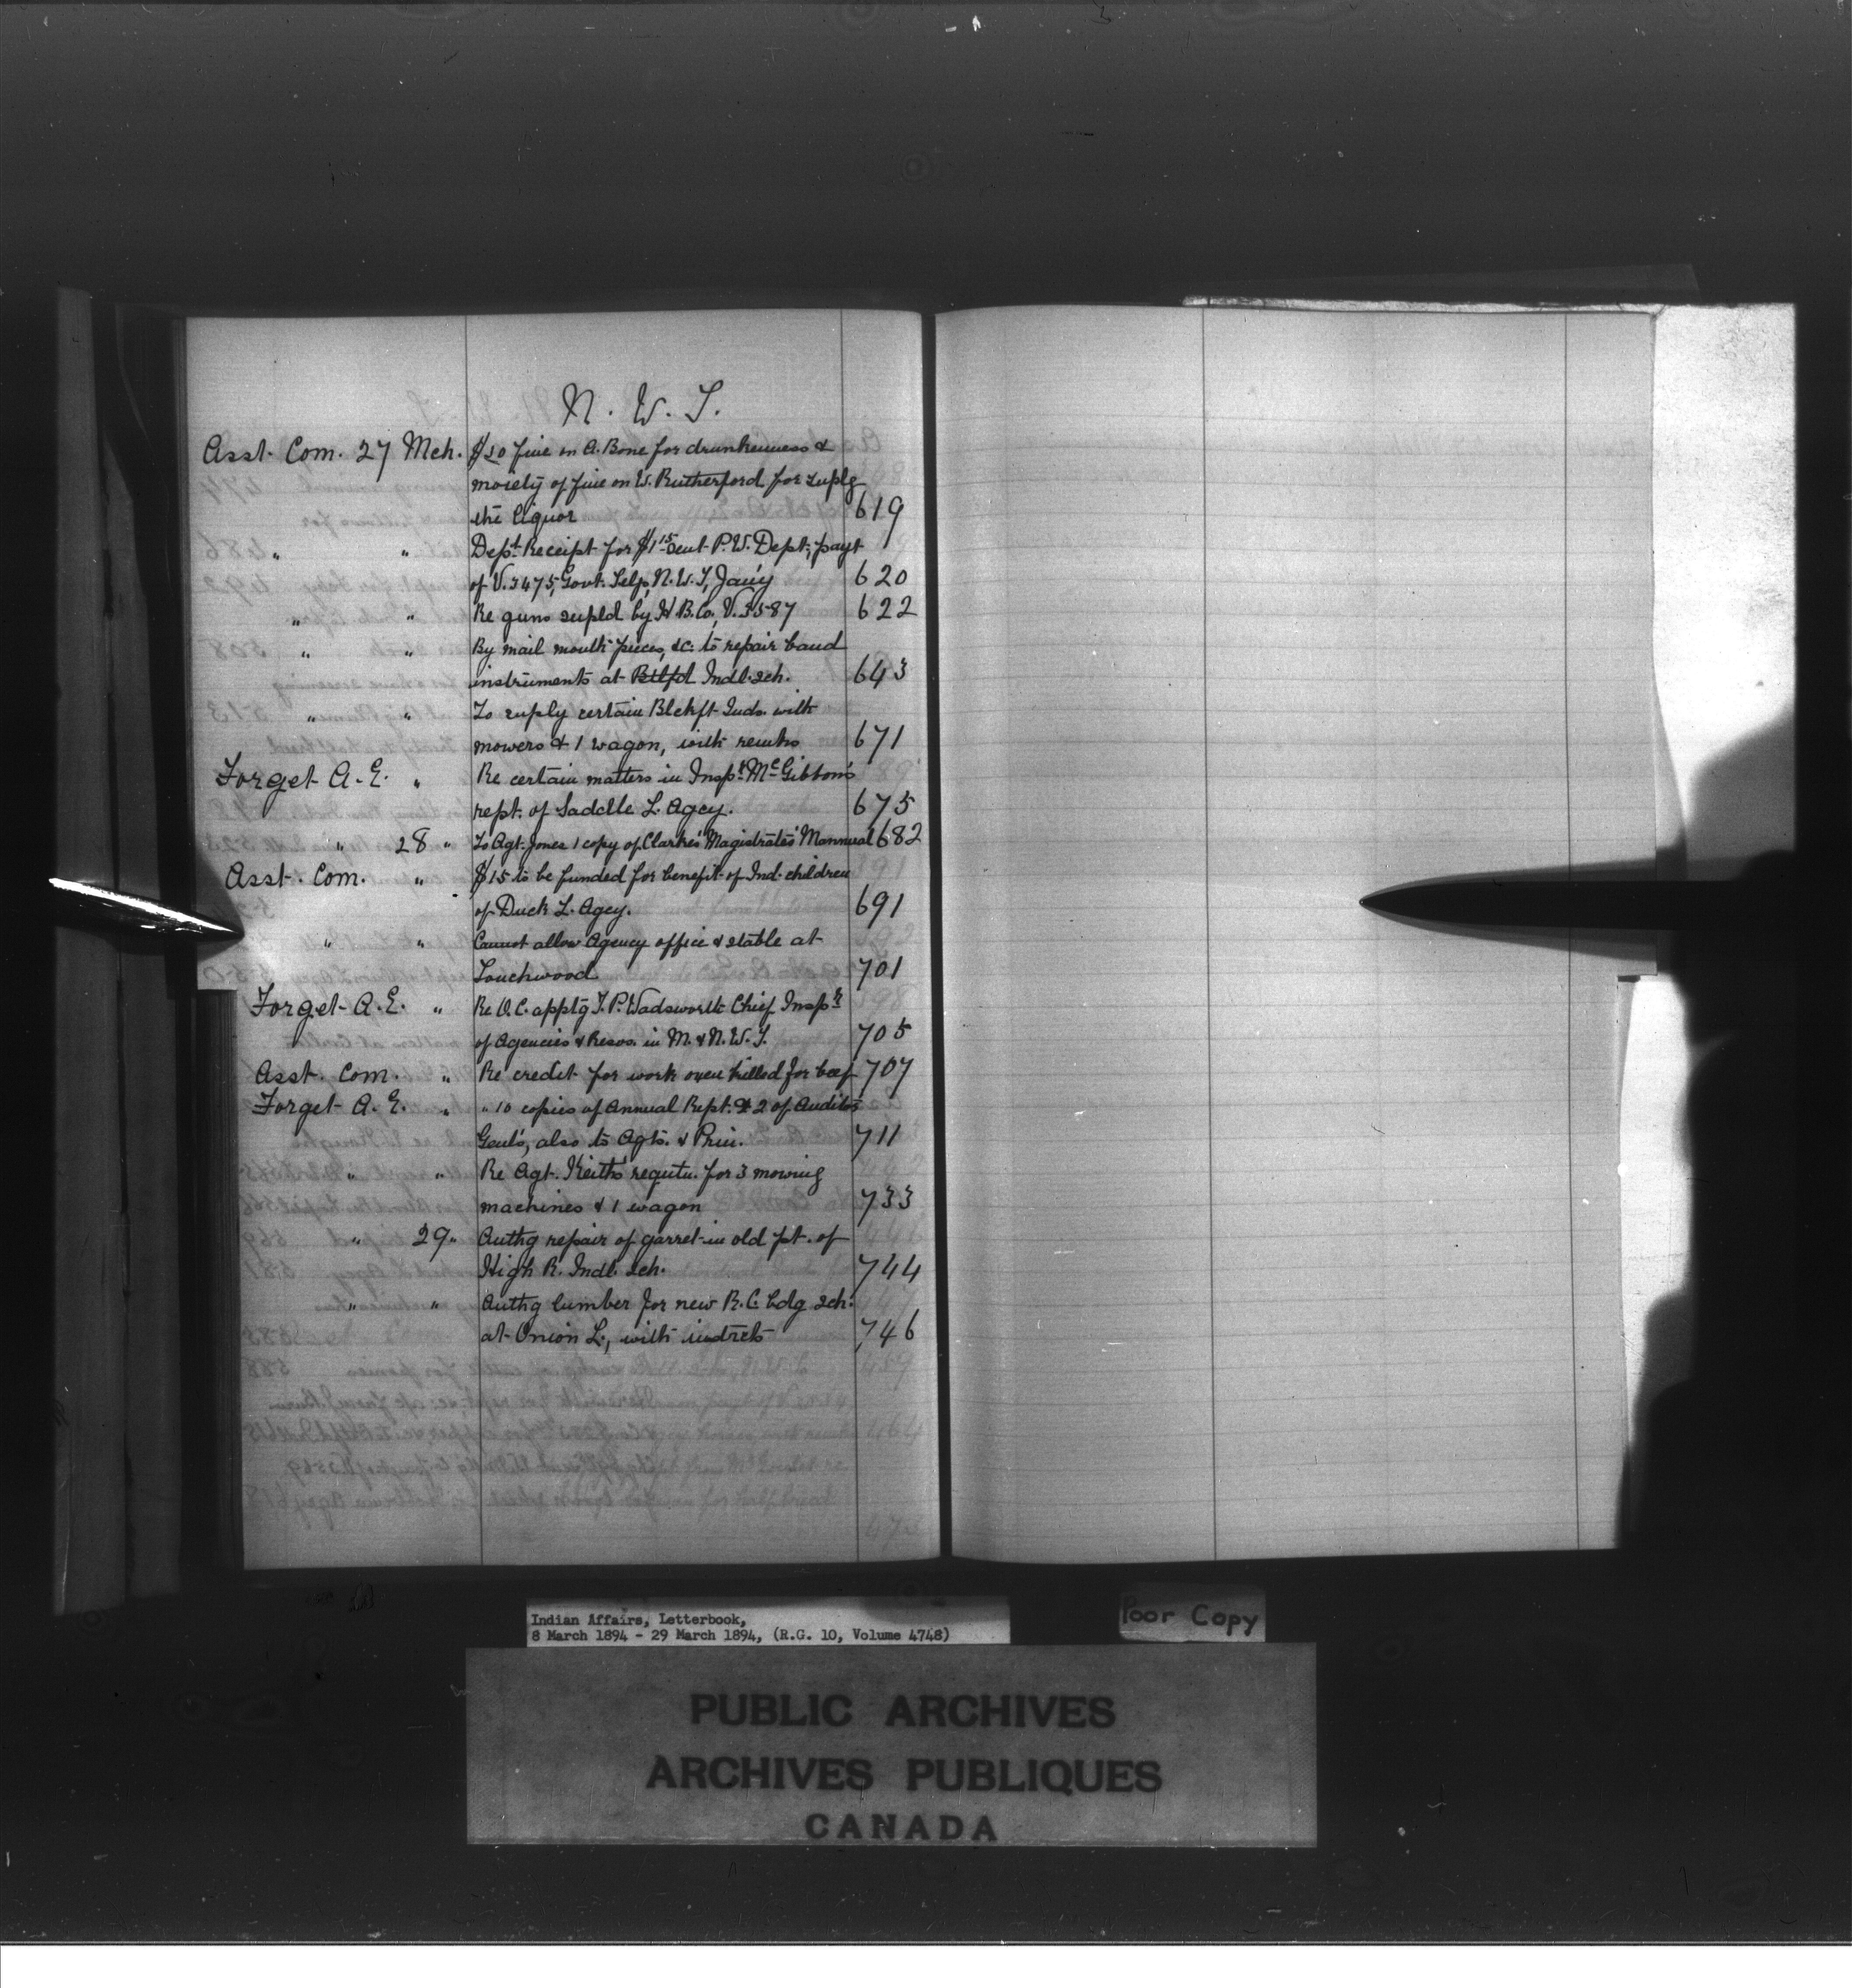 N. W. T.
Asst. Com. 27 Mch. $50 fine on A. Bone for drunkenness &
moiety of fine on W. Rutherford for suplg
the liquor 619
" " Dept. Receipt for $1.15 sent P. W. Dept., payt
of V. 3475, Govt. Telp, N. W. T, Jan'y 620
" " Re guns supld by H. B. Co, V. 3587 622
" " By mail mouth pieces, &c. to repair band
instruments at Btlfd Indl. sch. 643
" " To suply certain Blckft Inds. with
mowers & 1 wagon, with remks 671
Forget A. E. " Re certain matters in Inspr. McGibbon's
rept. of Saddle L. Agcy. 675
" 28 " To Agt. Jones 1 copy of Clarke's Magistrates' Mannual 682
Asst. Com. " $15 to be funded for benefit of Ind. children
of Duck L. Agcy. 691
" " Cannot allow Agency office & stable at
Touchwood 701
Forget A. E. " Re O. C. apptg T. P. Wadsworth Chief Inspr.
of Agencies & Resvs. in M. & N. W. T. 705
Asst. Com. " Re credit for work oxen killed for beef 707
Forget A. E. " " 10 copies of Annual Rept. & 2 of Auditor
Genl's, also to Agts. & Prin. 711
" " Re Agt. Keith's requtn. for 3 mowing
machines & 1 wagon 733
" 29 " Authg repair of garret in old pt. of
High R. Indl. sch. 744
" " Authg lumber for new R. C. bdg sch.
at Onion L., with instrcts 746
Indian Affairs, Letterbook,
8 March 1894 - 29 March 1894, (R.G. 10, Volume 4748)
Poor Copy
PUBLIC ARCHIVES
ARCHIVES PUBLIQUES
CANADA